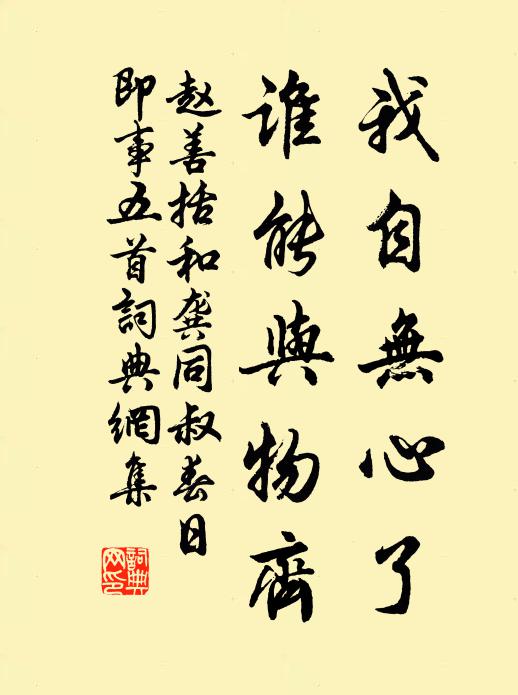 我自無心了
誰能與物齊
赵善括和龔同叔春日
即事五首詞典網集
詞典网印